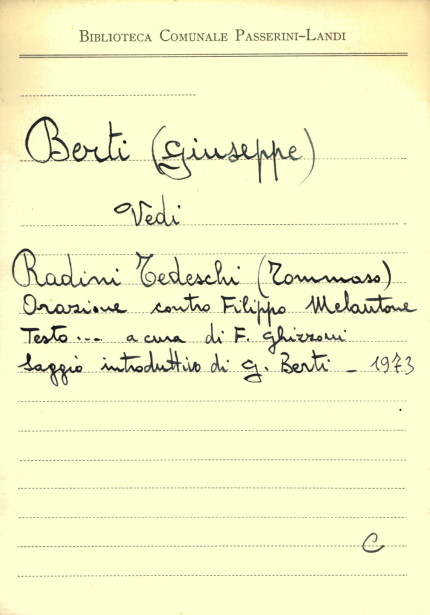 Biblioteca Comunale Passerini-Landi
Berti (Giuseppe)
Vedi
Radini Tedeschi (Tommaso)
Orazione contro Filippo Melantone
Testo... a cura di F. Ghizzoni
Saggio introduttivo di G. Berti - 1973
C